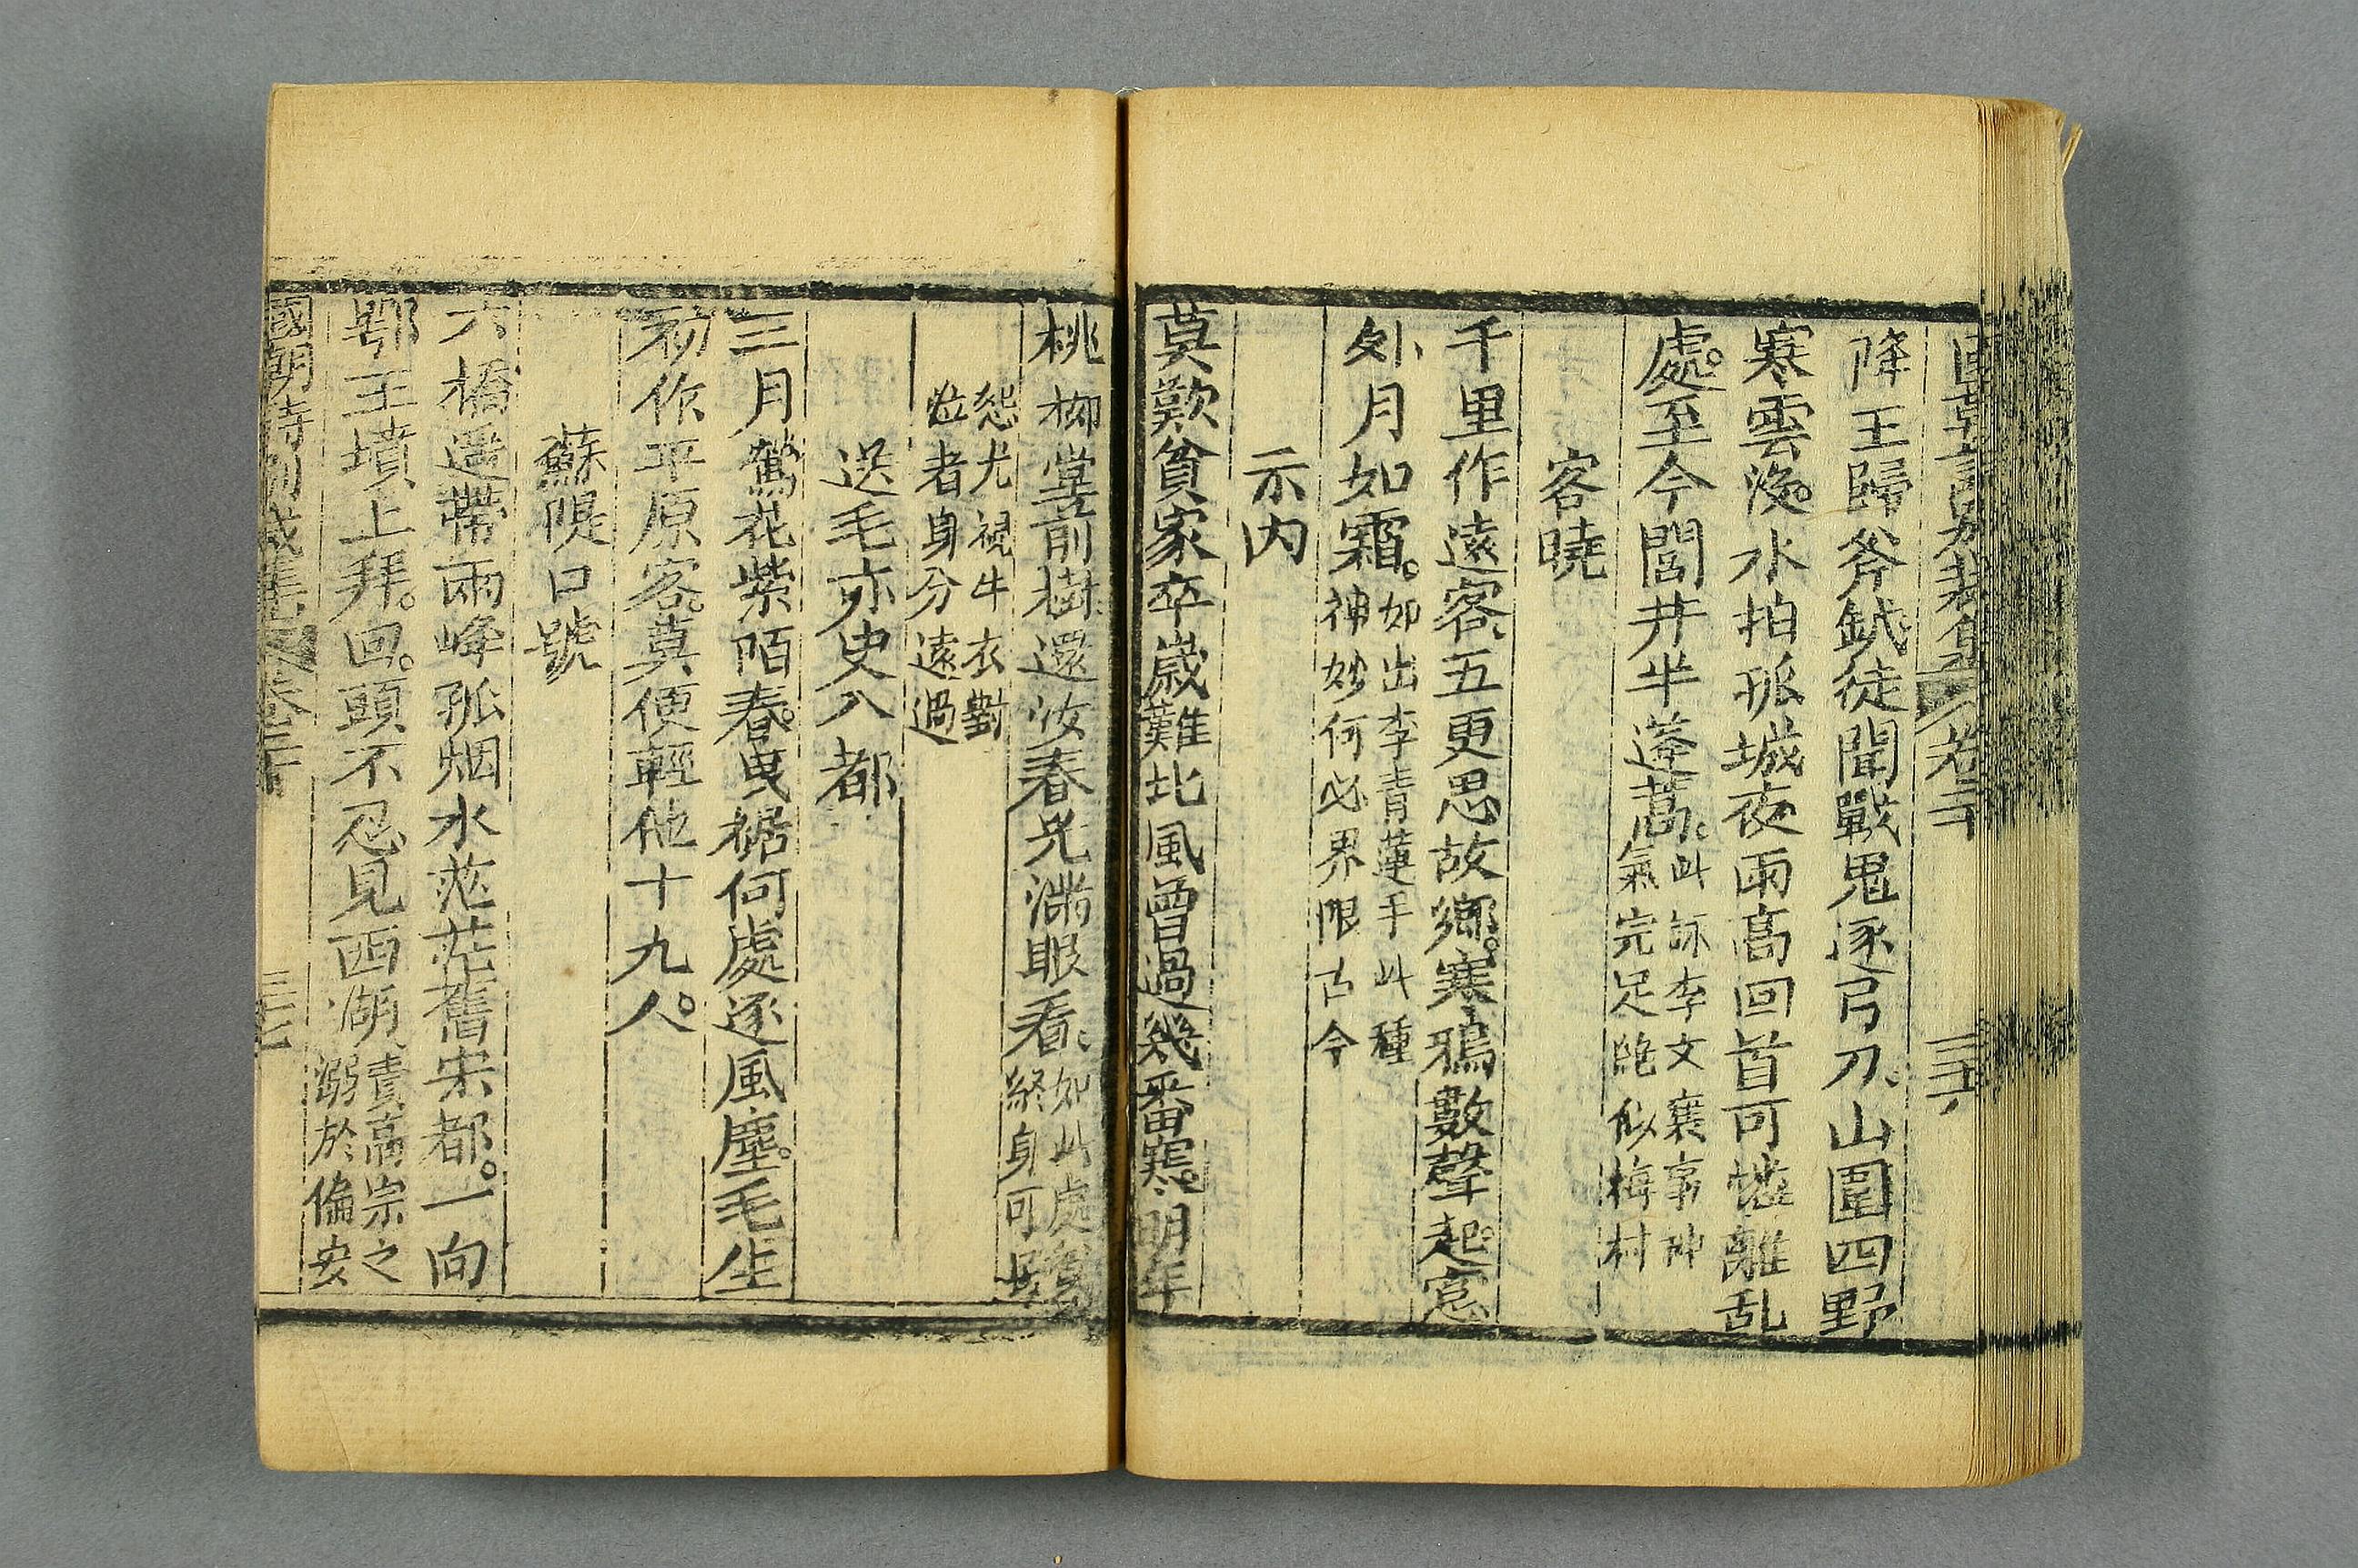 國朝詩別裁集 卷三十 三十六
降王歸斧鉞徒聞戰鬼逐弓刀山圍四野
寒雲淡水拍孤城夜雨高回首可憐離乱
處至今閭井半蓬蒿此詠李文襄事神
氣完足絶似梅村
客曉
千里作遠客五更思故鄉寒鴉數聲起窓
外月如霜如出李青蓮手此種
神妙何必界限古今
示內
莫歎貧家卒歲難北風曾過幾番寒明年
桃柳堂前樹還汝春光滿眼看如此處貧
終身可無
怨尤視牛衣對
泣者身分遠過
送毛亦史入都
三月鶯花紫陌春曳裾何處逐風塵毛生
初作平原客莫便輕他十九人
蘇隄口號
六橋遥帶兩峰孤烟水茫茫舊宋都一向
鄂王墳上拜回頭不忍見西湖責高宗之
溺於偏安
國朝詩別裁集 卷三十 三十七